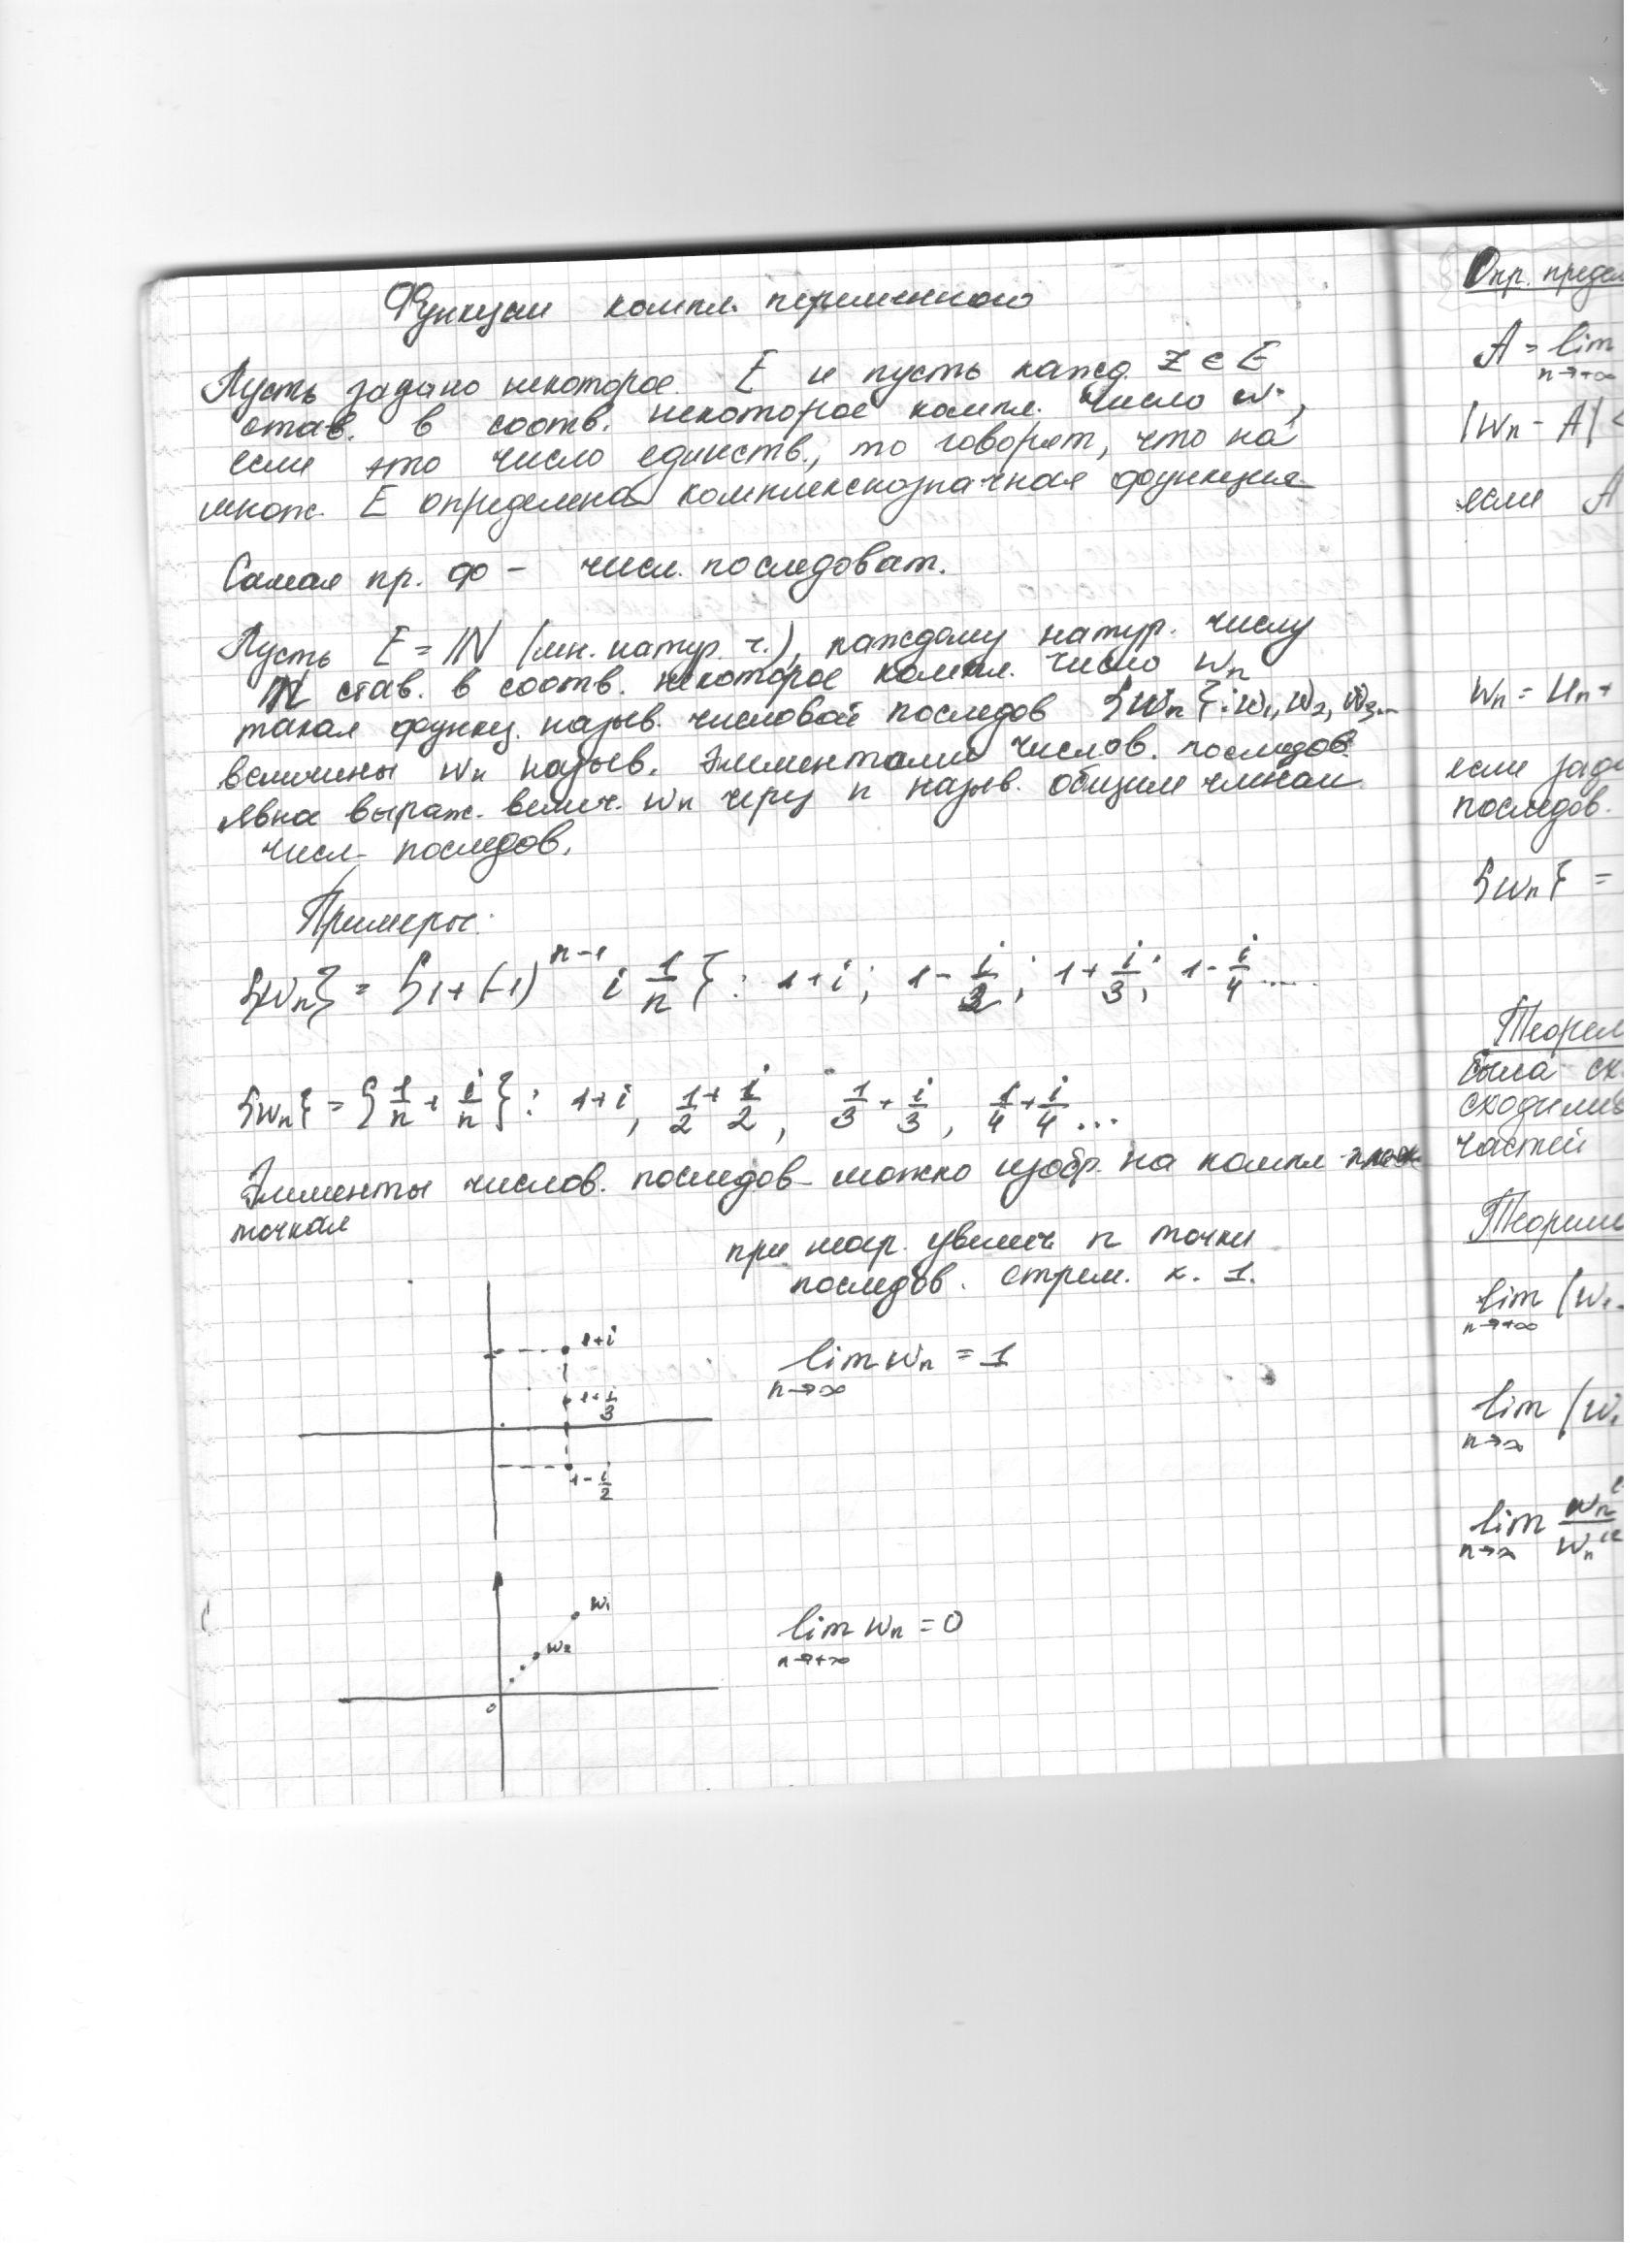 Функции компл. переменного
Пусть задано некоторое. E и пусть кажд. z ∈ E
став. в соотв. некоторое компл. число w.,
если это число единств., то говорят, что на
множ. E определена комплекснозначная функция
Самая пр. ф – числ. последоват.
Пусть E = ℕ (мн. натур. ч.), каждому натур. числу
n став. в соотв. некоторое компл. число wₙ
такая функц. назыв. числовой последов {wₙ}: w₁, w₂, w₃...
величины wₙ назыв. элементами числов. последов.
явное выраж. велич. wₙ через n назыв. общим членом
числ- последов.
Примеры:
{wₙ} = {1+(-1)ⁿ⁻¹ i 1/n}: 1+i; 1-i/2; 1+i/3; 1-i/4.....
{wₙ} = {1/n + i/n}: 1+i, 1/2+i/2, 1/3+i/3, 1/4+i/4...
Элементы числов. последов- можно изобр. на компл плоск
точкам
при неогр. увелич n точки
последов. стрем. к. 1.
1+i
1+i/3
1-i/2
lim wₙ = 1
n→∞
w₁
w₂
0
lim wₙ = 0
n→+∞
Опр. предел
A = lim
n→+∞
|wₙ - A| <
если A
wₙ = uₙ +
если зада
последов.
{wₙ} =
Теорем
была сх
сходимо
частей
Теорем
lim (w
n→+∞
lim (w
n→∞
lim wₙ/wₙ
n→∞